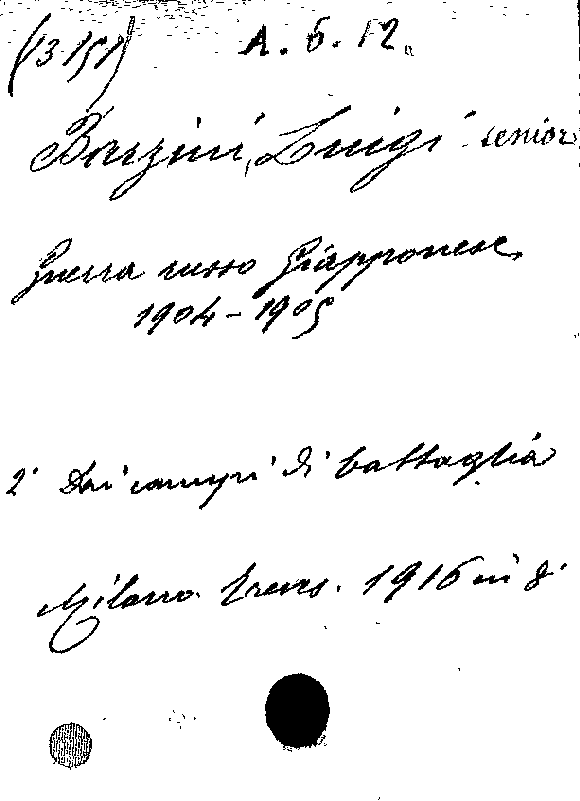 (13151) A. 6. 12.
Barzini, Luigi senior
Guerra russo Giapponese
1904-1905
2° Dai campi di battaglia
Milano. Treves. 1916 in 8°